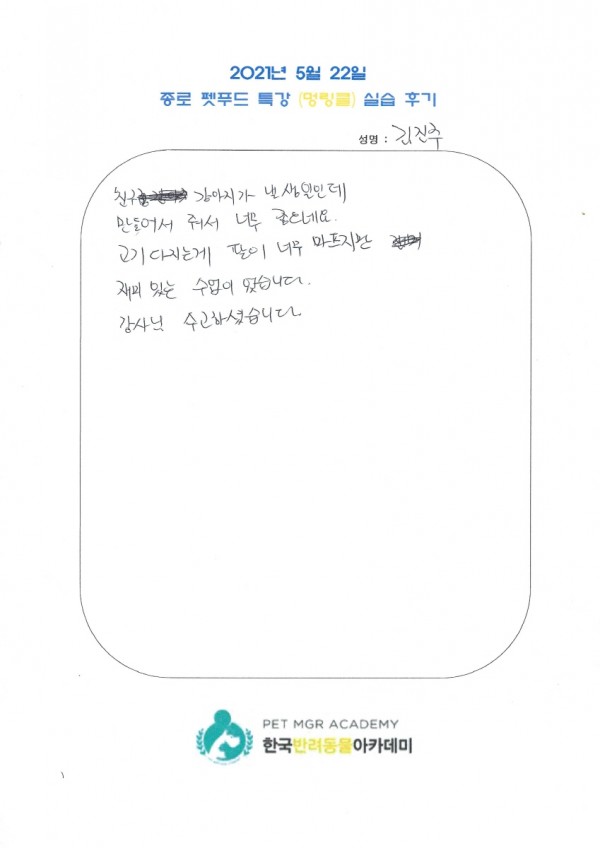 2021년 5월 22일
종로 펫푸드 특강 (멍링클) 실습 후기
성명 : 김진주
친구 강아지가 낼 생일인데
만들어서 줘서 너무 좋으네요.
고기 다지는게 팔이 너무 아프지만
재미 있는 수업이 았습니다.
강사님 수고하셨습니다
PET MGR ACADEMY
한국반려동물아카데미